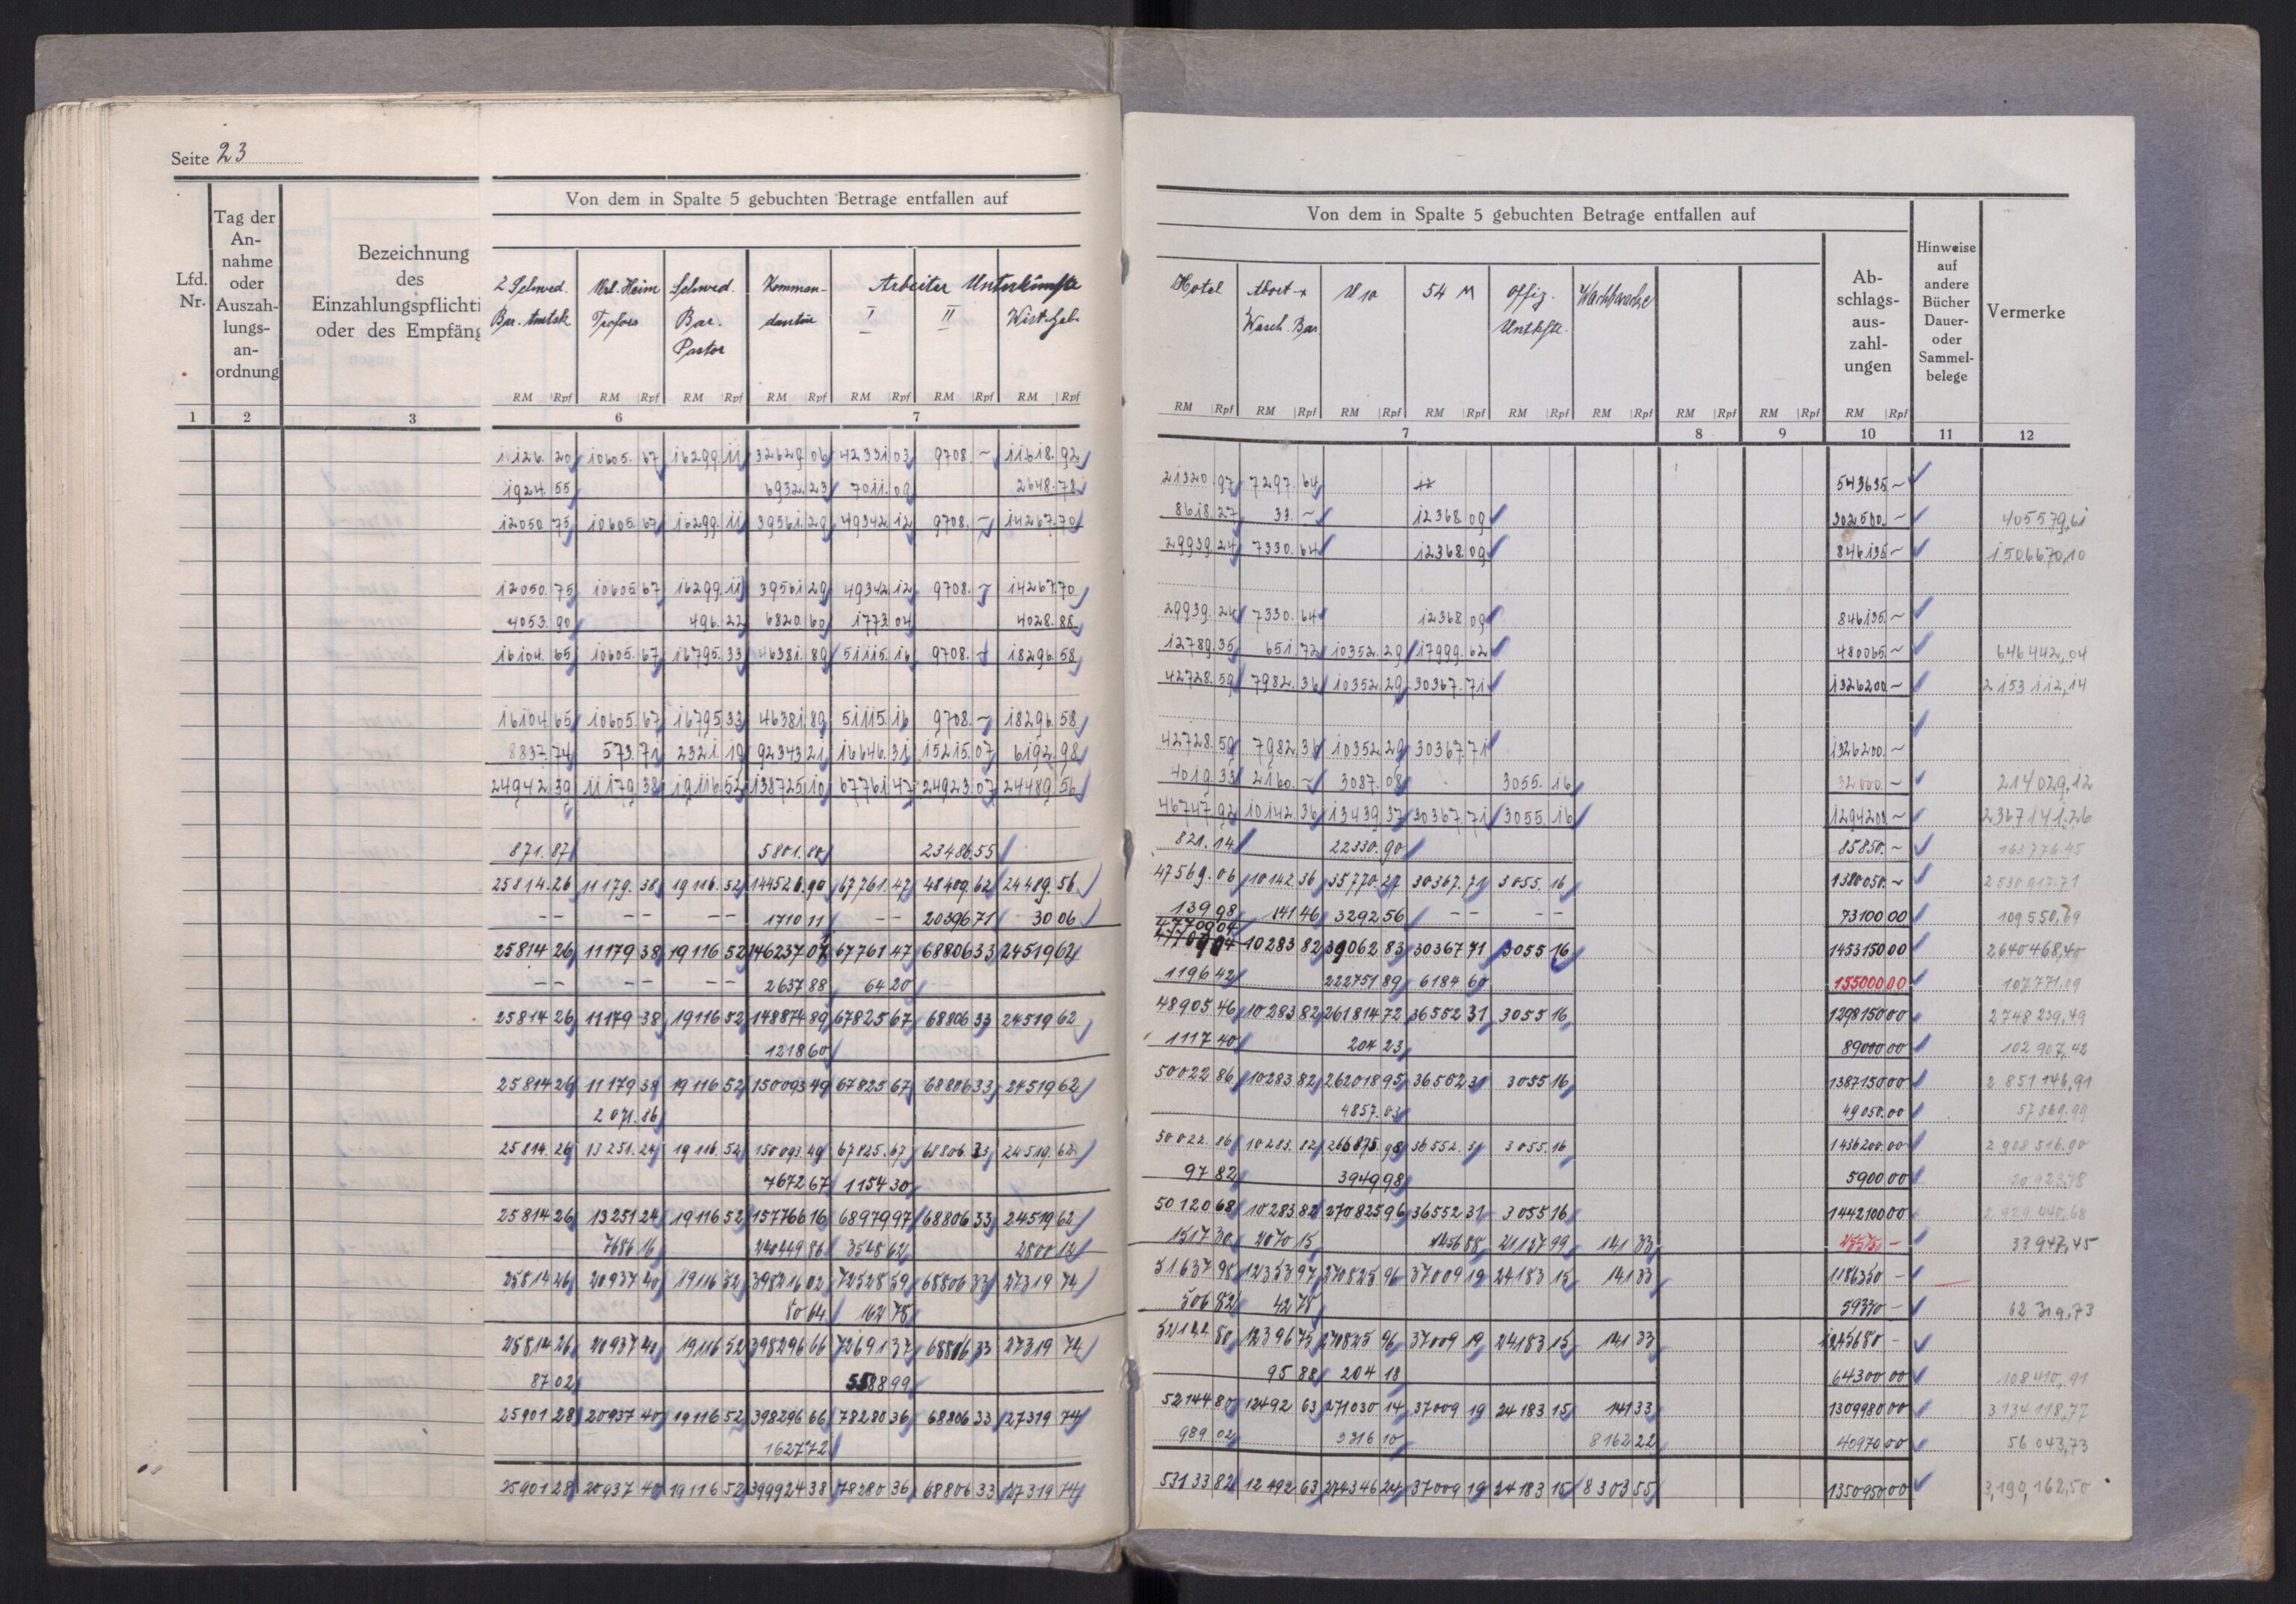 Seite 23
Lfd. Nr.
Tag der An-
nahme
oder
Auszah-
lungs-
an-
ordnung
Bezeichnung
des
Einzahlungspflichti
oder des Empfäng
Von dem in Spalte 5 gebuchten Betrage entfallen auf
2 Schwed. Url. Heim Schwed. Komman- Arbeiter Unterkünfte
Bar. Trofors Bar. dantur I II Wirt. Geb.
Pastor
RM Rpf RM Rpf RM Rpf RM Rpf RM Rpf RM Rpf RM Rpf
1 2 3 6 7
11126.20 10605.67 16299.11 32629.06 42331.03 9708.~ 11618.92
1924.55 6932.23 7011.09 2648.78
12050.75 10605.67 16299.11 39561.29 49342.12 9708.~ 14267.70
12050.75 10605.67 16299.11 39561.29 49342.12 9708.~ 14267.70
4053.90 496.22 6820.60 1773.04 4028.88
16104.65 10605.67 16795.33 46381.89 51115.16 9708.~ 18296.58
16104.65 10605.67 16795.33 46381.89 51115.16 9708.~ 18296.58
8837.74 573.71 2321.19 92343.21 16646.31 15215.07 6192.98
24942.39 11179.38 19116.52 138725.10 67761.47 24923.07 24489.56
871.87 5801.80 23486.55
25814.26 11179.38 19116.52 144526.90 67761.47 48409.62 24489.56
-- -- -- 1710 11 -- 20396 71 30 06
25814 26 11179 38 19116 52 146237 01 67761 47 68806 33 24519 62
-- -- -- 2637 88 64 20
25814 26 11179 38 19116 52 148874 89 67825 67 68806 33 24519 62
1218 60
25814 26 11179 38 19116 52 150093 49 67825 67 68806 33 24519 62
2071.86
25814.26 13251.24 19116.52 150093.49 67825.67 68806.33 24519.62
7672 67 1154 30
25814 26 13251 24 19116 52 157766 16 68979 97 68806 33 24519 62
7686 16 240449 86 3548 62 2800 12
25814 26 20937 40 19116 52 398216 02 72528 59 68806 33 27319 74
80 64 162 78
25814 26 20937 40 19116 52 398296 66 72691 37 68806 33 27319 74
87 02 5588 99
25901 28 20937 40 19116 52 398296 66 78280 36 68806 33 27319 74
1627 72
25901 28 20937 40 19116 52 399924 38 78280 36 68806 33 27319 74
Von dem in Spalte 5 gebuchten Betrage entfallen auf
Hotel Abort- + U 10 54 M Offiz. Waschbaracke
Wasch. Bar. Untkft.
Ab-
schlags-
aus-
zahl-
ungen
Hinweise
auf
andere
Bücher
Dauer-
oder
Sammel-
belege
Vermerke
RM Rpf RM Rpf RM Rpf RM Rpf RM Rpf RM Rpf RM Rpf RM Rpf RM Rpf
7 8 9 10 11 12
21320.97 7297.64 543635.~
8618.27 33.~ 12368.09 302500.~ 405579,61
29939.24 7330.64 12368.09 846135.~ 1506670,10
29939.24 7330.64 12368.09 846135.~
12789.35 651.72 10352.29 17999.62 480065.~ 646442,04
42728.59 7982.36 10352.29 30367.71 1326200.~ 2153112,14
42728.59 7982.36 10352.29 30367.71 1326200.~
4019.33 2160.~ 3087.08 3055.16 32000.~ 214029,12
46747.92 10142.36 13439.37 30367.71 3055.16 1294200.~ 2367141.26
821.14 22330.90 85850.~ 163776.45
47569.06 10142.36 35770.27 30367.71 3055.16 1380050.~ 2530917.71
139 98 141 46 3292 56 -- -- 73100 00 109550,69
47709 04 10283 82 39062 83 30367 71 3055 16 1453150 00 2640468,40
1196 42 222751 89 6184 60 155000 00 107771.09
48905 46 10283 82 261814 72 36552 31 3055 16 1298150 00 2748239,49
1117 40 204 23 89000 00 102907,42
50022 86 10283 82 262018 95 36552 31 3055 16 1387150 00 2851146,91
4857.03 49050.00 57369.99
50022.86 10283.82 266875.98 36552.31 3055.16 1436200.00 2908516.90
97 82 3949 98 5900 00 20923,78
50120 68 10283 82 270825 96 36552 31 3055 16 1442100 00 2929440,68
1517 30 2070 15 456 88 21137 99 141 33 33947,45
51637 98 12353 97 270825 96 37009 19 24183 15 141 33 1186350 -
506 82 42 78 59330 - 62319,73
52144 80 12396 75 270825 96 37009 19 24183 15 141 33 1245680 -
95 88 204 18 64300 00 108410,91
52144 80 12492 63 271030 14 37009 19 24183 15 141 33 1309980 00 3134118,77
989 02 3316 10 8162 22 40970 00 56043,73
53133 82 12492 63 274346 24 37009 19 24183 15 8303 55 1350950 00 3,190,162,50